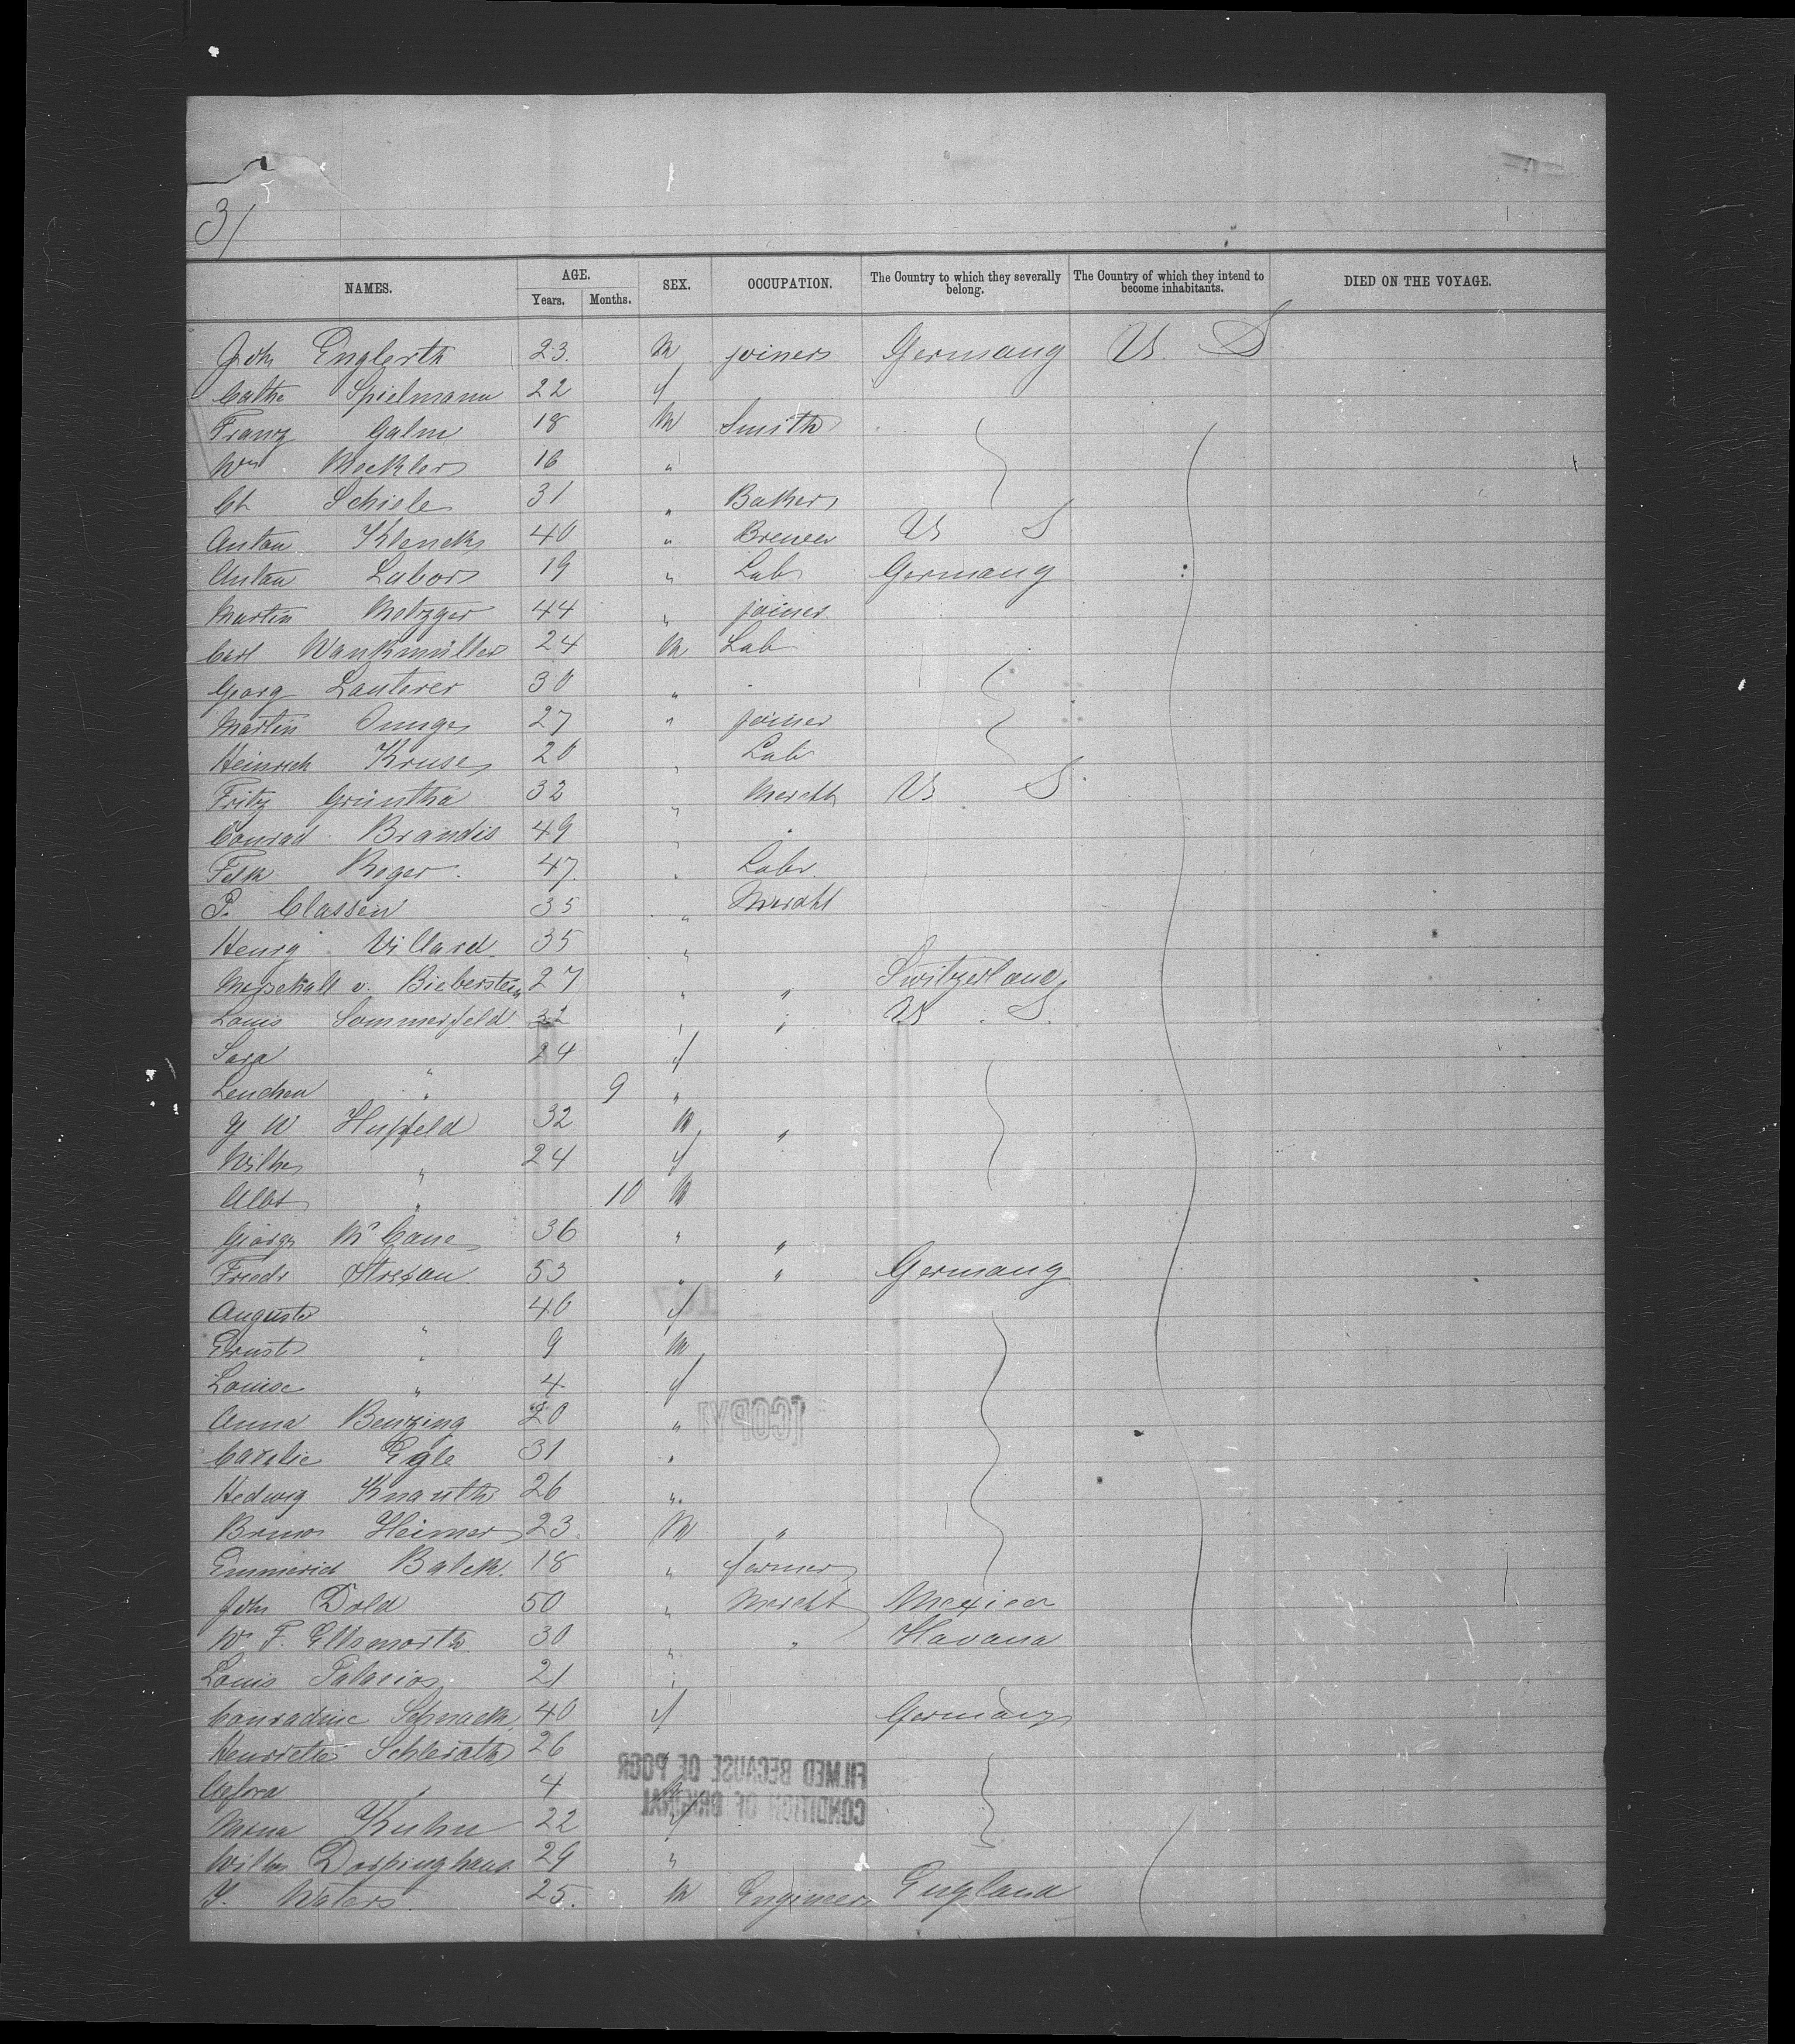 31
NAMES. AGE. Years. Months. SEX. OCCUPATION. The Country to which they severally belong. The Country of which they intend to become inhabitants. DIED ON THE VOYAGE.
Joh Englerth 23. M joiner Germany U. S
Cathe Spielmann 22 f
Franz Galm 18 M Smith
Wm Mockler 16 "
Ch Schiele 31 " Baker
Anton Klenck 40 " Brewer U S
Anton Labor 19 " Lab Germany
Martin Metzger 44 " joiner
Carl Wankmüller 24 M Lab
Georg Lauterer 30 "
Martin Junge 27 " joiner
Heinrich Kruse 20 " Lab
Fritz Grüntha 32 " Mercht U. S.
Conrad Brandis 49 " "
Roger 47. " Labr.
P. Classen 35 " Mercht
Henry Villard 35 "
Marschall v. Bieberstein 27 " " Switzerland
Louis Sommerfeld 32 " " U. S.
Sara " 24 f
Lenchen " 9 "
W Hupfeld 32 M "
Wilhe " 24 f
Albt " 10 M
George Mc Cane 36 " "
Friedr Strefan 53 " " Germany
Auguste " 40 f
Ernst " 9 M
Louise " 4 f
Anna Benzing 20 "
Egle 31 "
Hedwig Knauth 26 ".
Bruno Heimer 23. M "
Emmerich Balck. 18 " farmer
Joh Dold 50 " Mercht Mexico
W. F. Ellsworth 30 " " Havana
Louis Palacios 21 "
Conradine Schnack 40 f Germany
Henriette Schlerath 26
" 4
Kuhn 22 f
Wilhe Dorpinghaus 29 "
Waters. 25. M Engineer England
[COPY]
FILMED BECAUSE OF POOR
CONDITION OF ORIGINAL